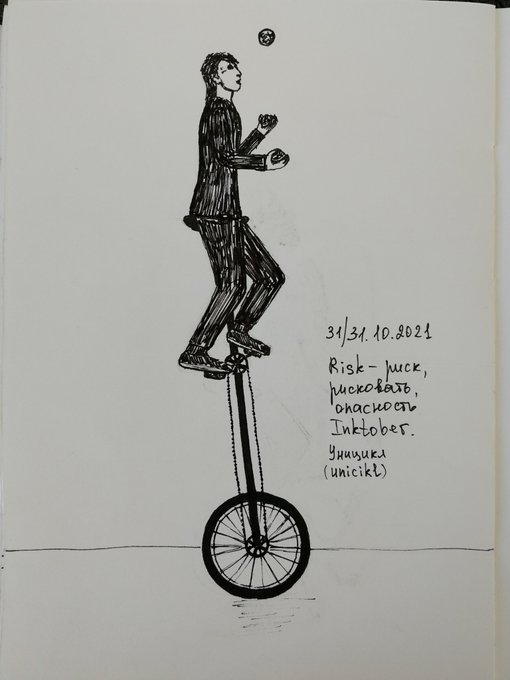 31/31.10.2021
Risk - риск,
рисковать,
опасность
Inktober.
Уницикл
(unicikl)